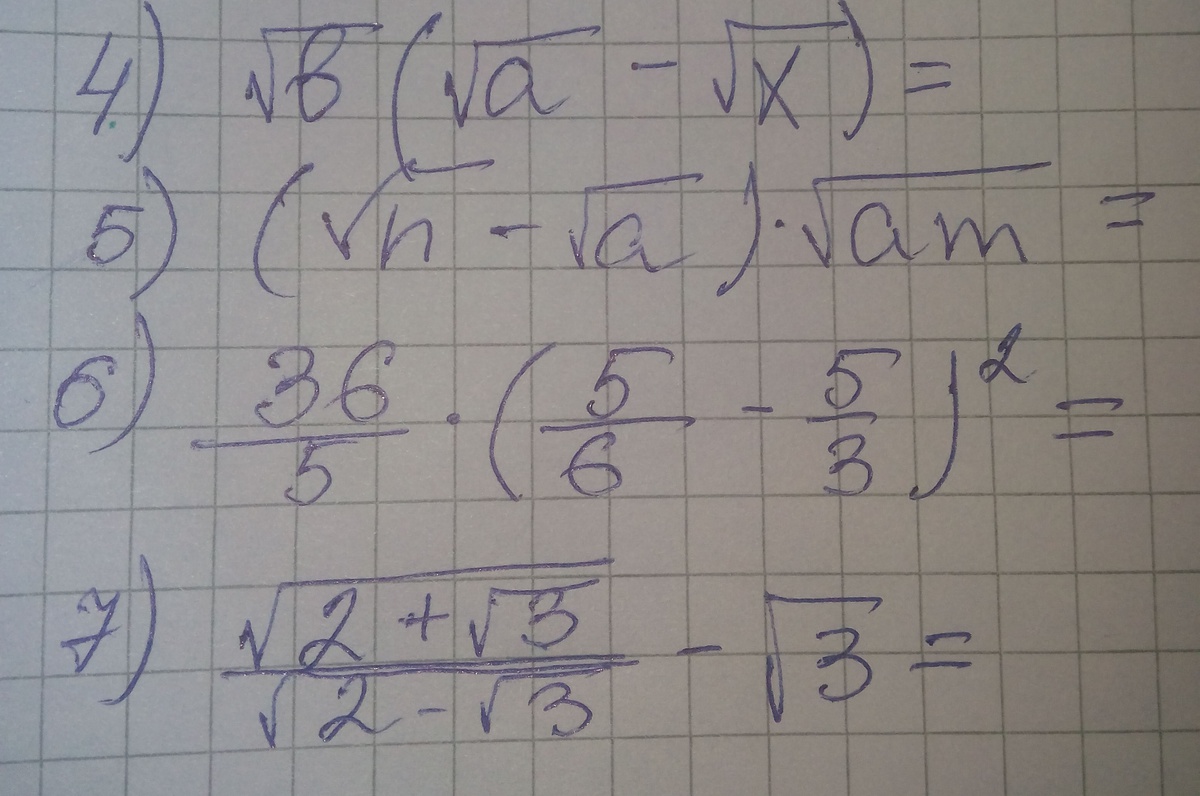 4) √в(√a - √x) =
5) (√n - √a) · √am =
6) 36/5 · (5/6 - 5/3)² =
7) √(2 + √3)/√(2 - √3) - √3 =